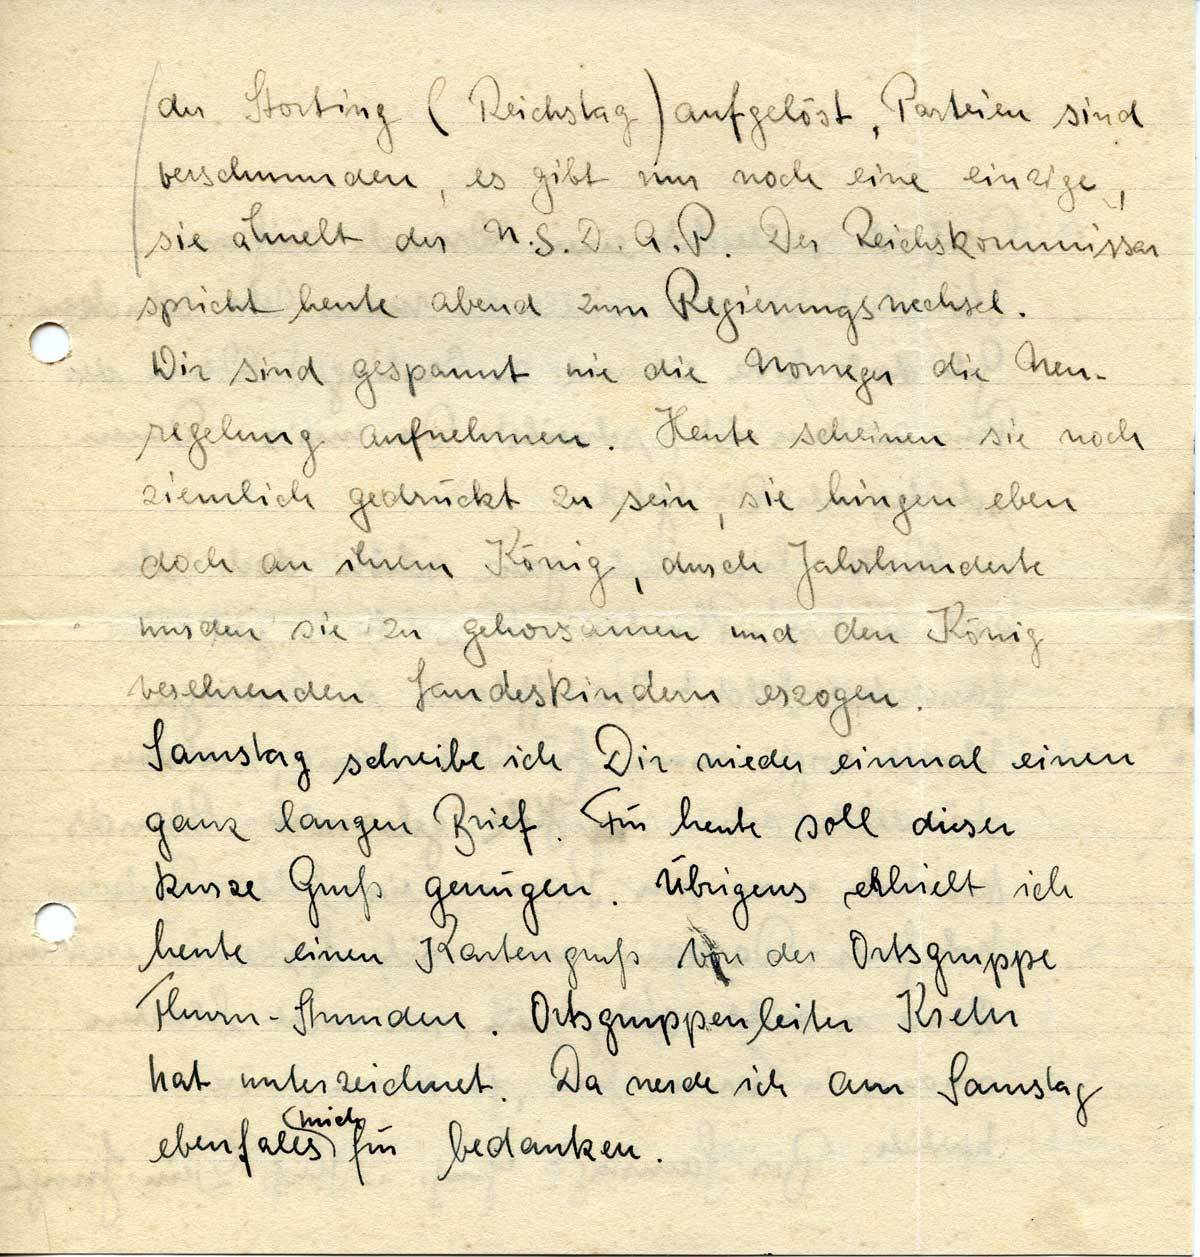 der Storting (Reichstag) aufgelöst, Parteien sind
verschwunden, es gibt nur noch eine einzige,
sie ähnelt der N.S.D.A.P. Der Reichskommissar
spricht heute abend zum Regierungswechsel.
Wir sind gespannt wie die Norweger die Neu-
regelung aufnehmen. Heute scheinen sie noch
ziemlich gedrückt zu sein, sie hingen eben
doch an ihrem König, durch Jahrhunderte
wurden sie zu gehorsamen und den König
verehrenden Landeskindern erzogen.
Samstag schreibe ich Dir wieder einmal einen
ganz langen Brief. Für heute soll dieser
kurze Gruß genügen. Übrigens erhielt ich
heute einen Kartengruß von der Ortsgruppe
Thurn-Strunden. Ortsgruppenleiter Kreter
hat unterzeichnet. Da werde ich am Samstag
ebenfalls mich für bedanken.